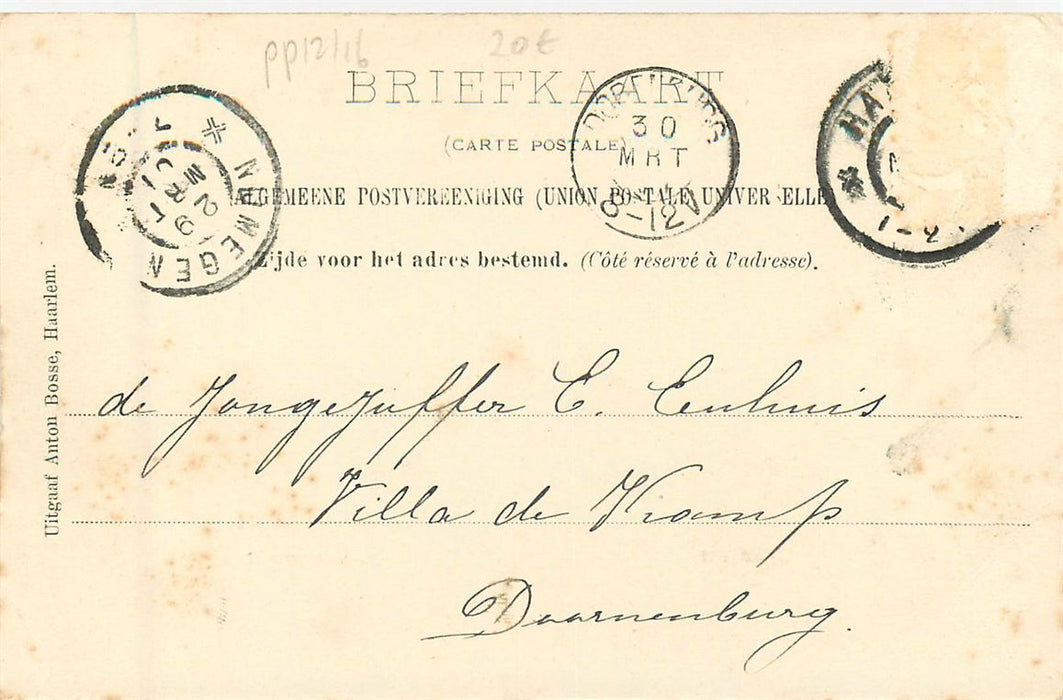 pp12/16
20€
BRIEFKAART
(CARTE POSTALE)
ALGEMEENE POSTVEREENIGING (UNION POSTALE UNIVERSELLE
Zijde voor het adres bestemd. (Côté réservé à l'adresse).
NIJMEGEN
29 MRT
30
MRT
8-12V
HA
1-2
de Jongejuffer C. Eenhuis
Villa de Kramp
Doornenburg.
Uitgaaf Anton Bosse, Haarlem.